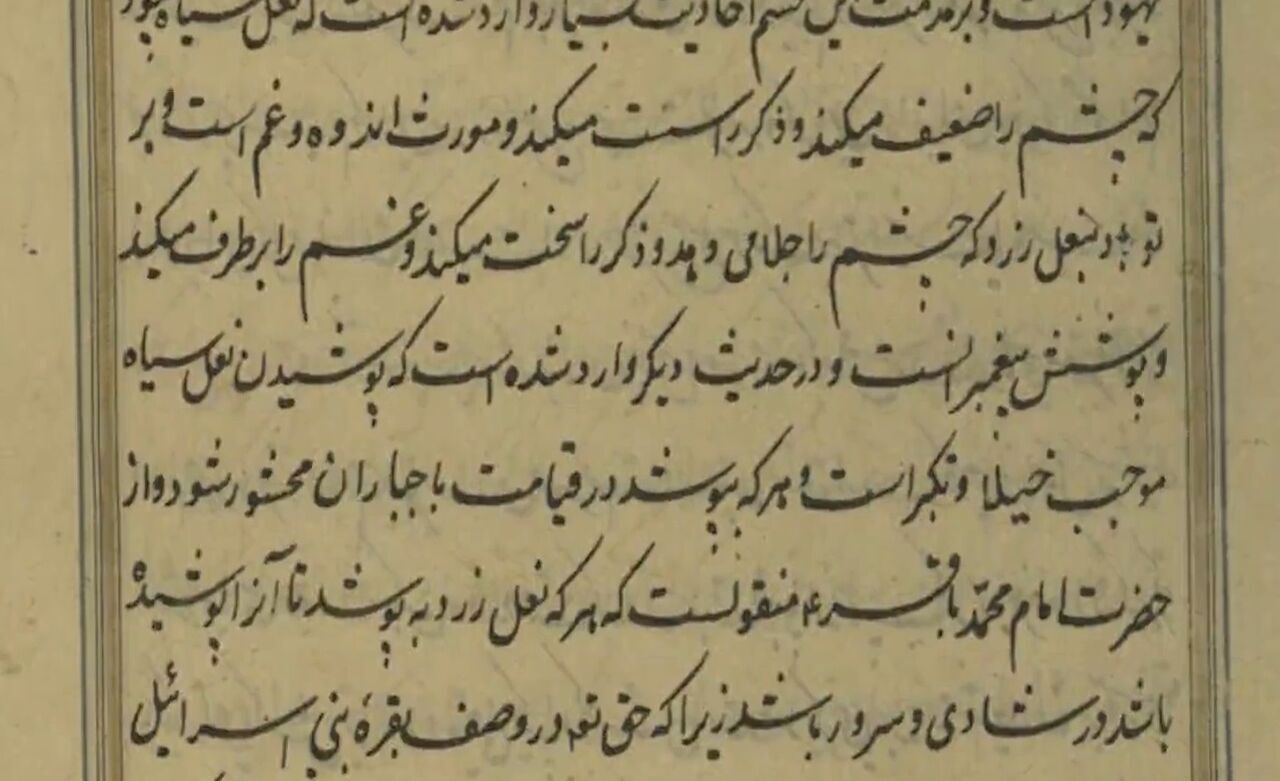 یهود است و بر مذمت این قسم احادیث بسیار وارد شده است که نعل سیاه مپوش
که چشم را ضعیف میکند و ذکر را سست میکند و مورث اندوه و غم است و بر
تو باد بنعل زرد که چشم را جلا می دهد و ذکر را سخت میکند و غم را بر طرف میکند
و پوشش پیغمبرانست و در حدیث دیگر وارد شده است که پوشیدن نعل سیاه
موجب خیلا و تکبر است و هر که بپوشد در قیامت با جباران محشور شود و از
حضرت امام محمد باقر ع منقولست که هر که نعل زرد به پوشد تا آنرا پوشیده
باشد در شادی و سرور باشد زیرا که حق تع در وصف بقرهٔ بنی اسرائیل